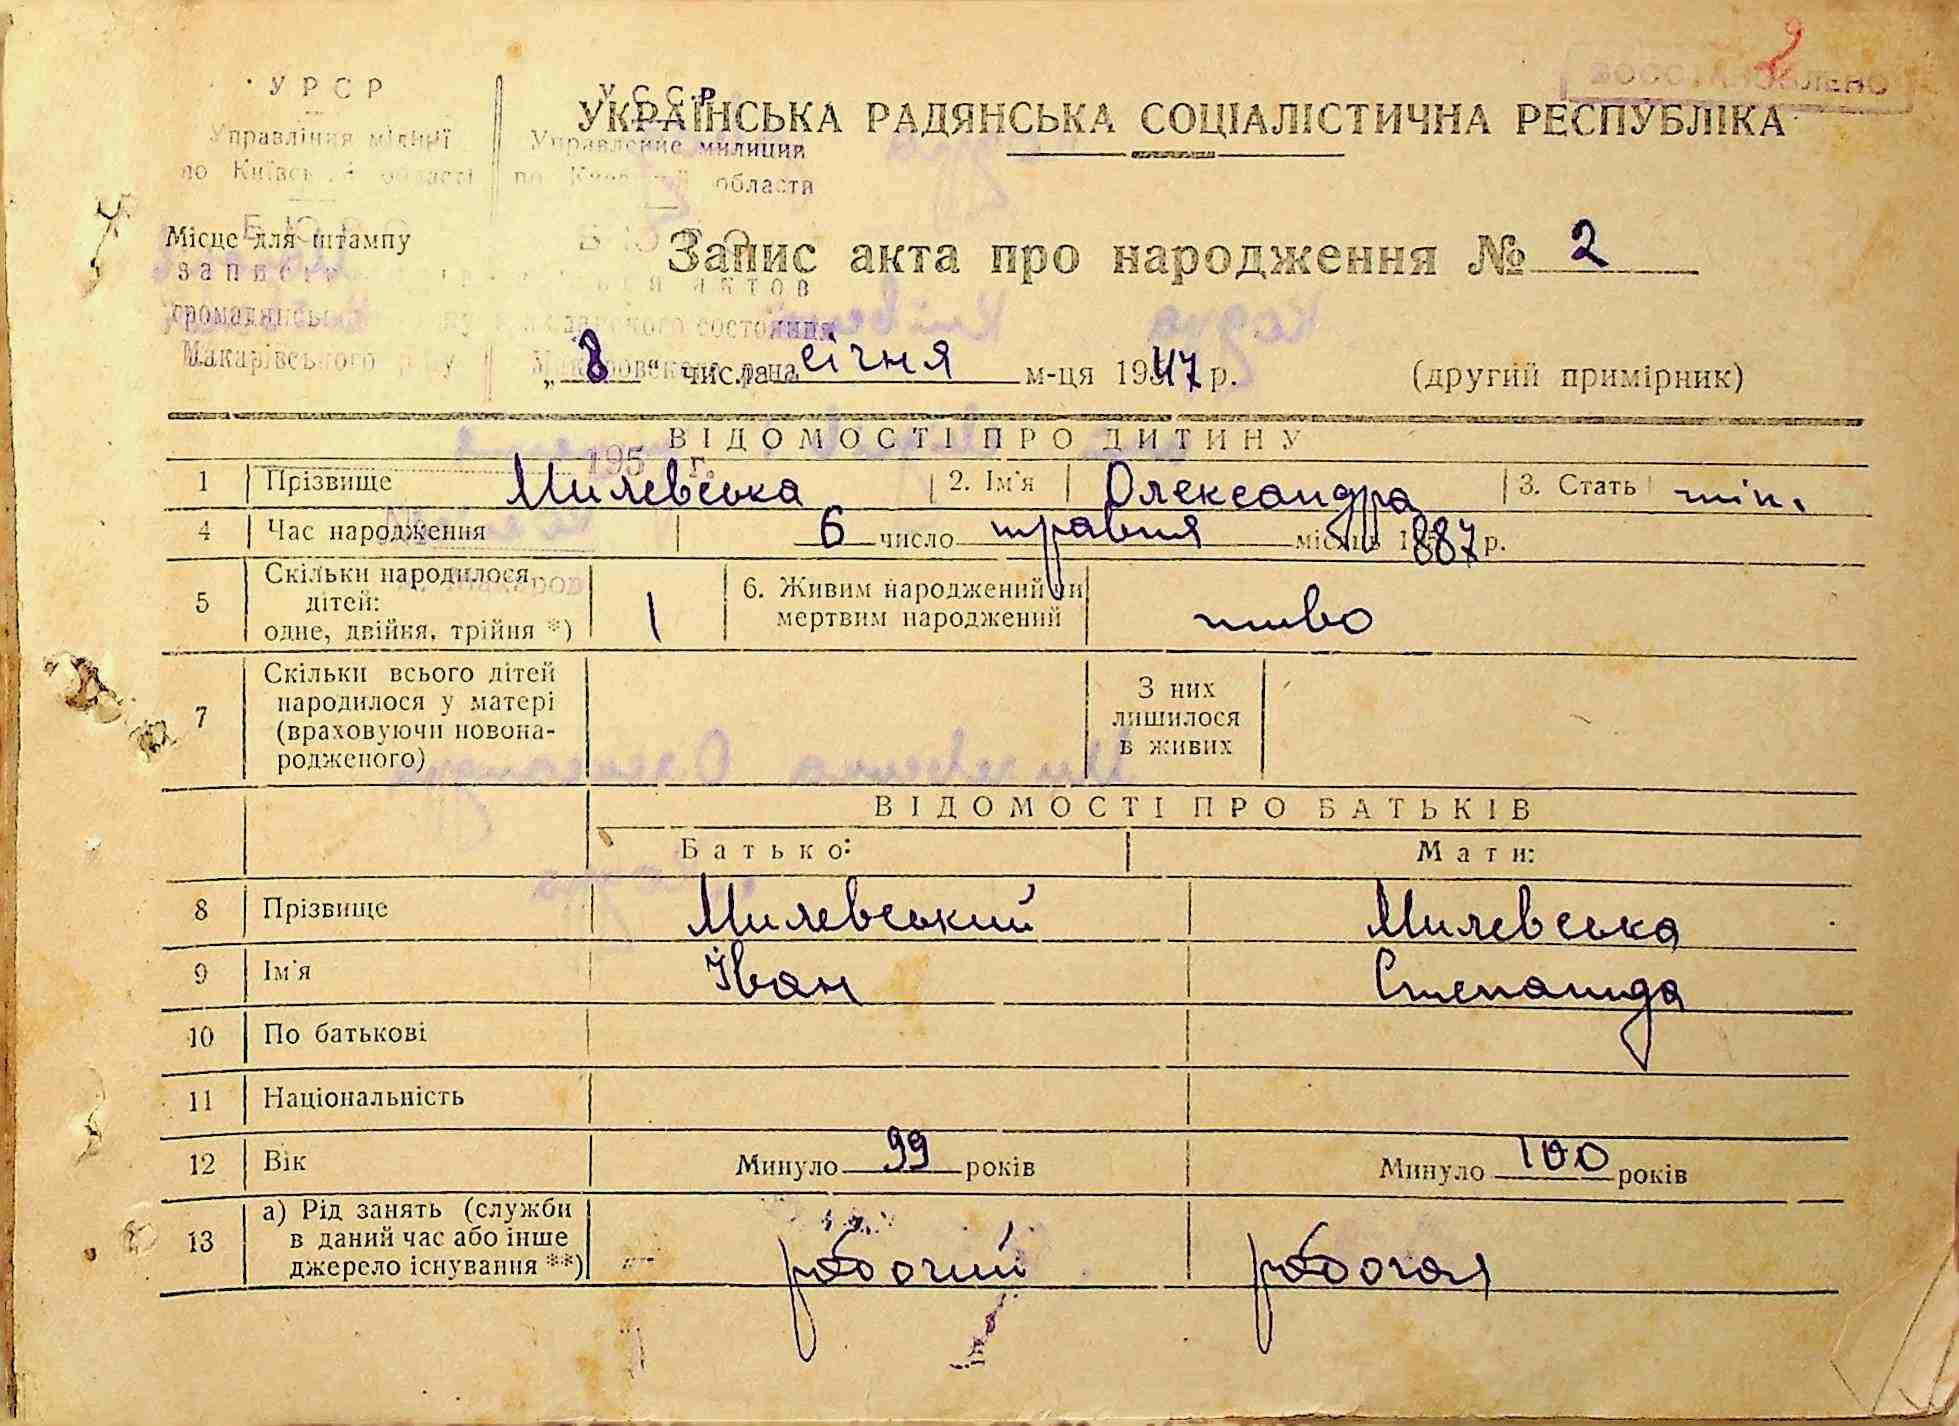 УРСР
У.С.С.Р
УКРАЇНСЬКА РАДЯНСЬКА СОЦІАЛІСТИЧНА РЕСПУБЛІКА
Управління міліції
Управление милиции
по Київській області
по Киевской области
БЮРО
Місце для штампу
Запис акта про народження № 2
запису
актов
громадянського
гражданского состояния
Макарівського р-ну
Макаровского р-на
„8“ числа січня м-ця 1947 р. (другий примірник)
ВІДОМОСТІ ПРО ДИТИНУ
195 г.
1 Прізвище Милевська 2. Ім'я Олександра 3. Стать жін.
4 Час народження 6 число травня місяць 1887 р.
5 Скільки народилося дітей:
одне, двійня, трійня *) 1 6. Живим народжений чи
мертвим народжений живо
7 Скільки всього дітей
народилося у матері
(враховуючи новона-
родженого)
З них
лишилося
в живих
ВІДОМОСТІ ПРО БАТЬКІВ
Батько: Мати:
8 Прізвище Милевський Милевська
9 Ім'я Іван Степанида
10 По батькові
11 Національність
12 Вік Минуло 99 років Минуло 100 років
13 а) Рід занять (служби
в даний час або інше
джерело існування **) рабочий рабочая